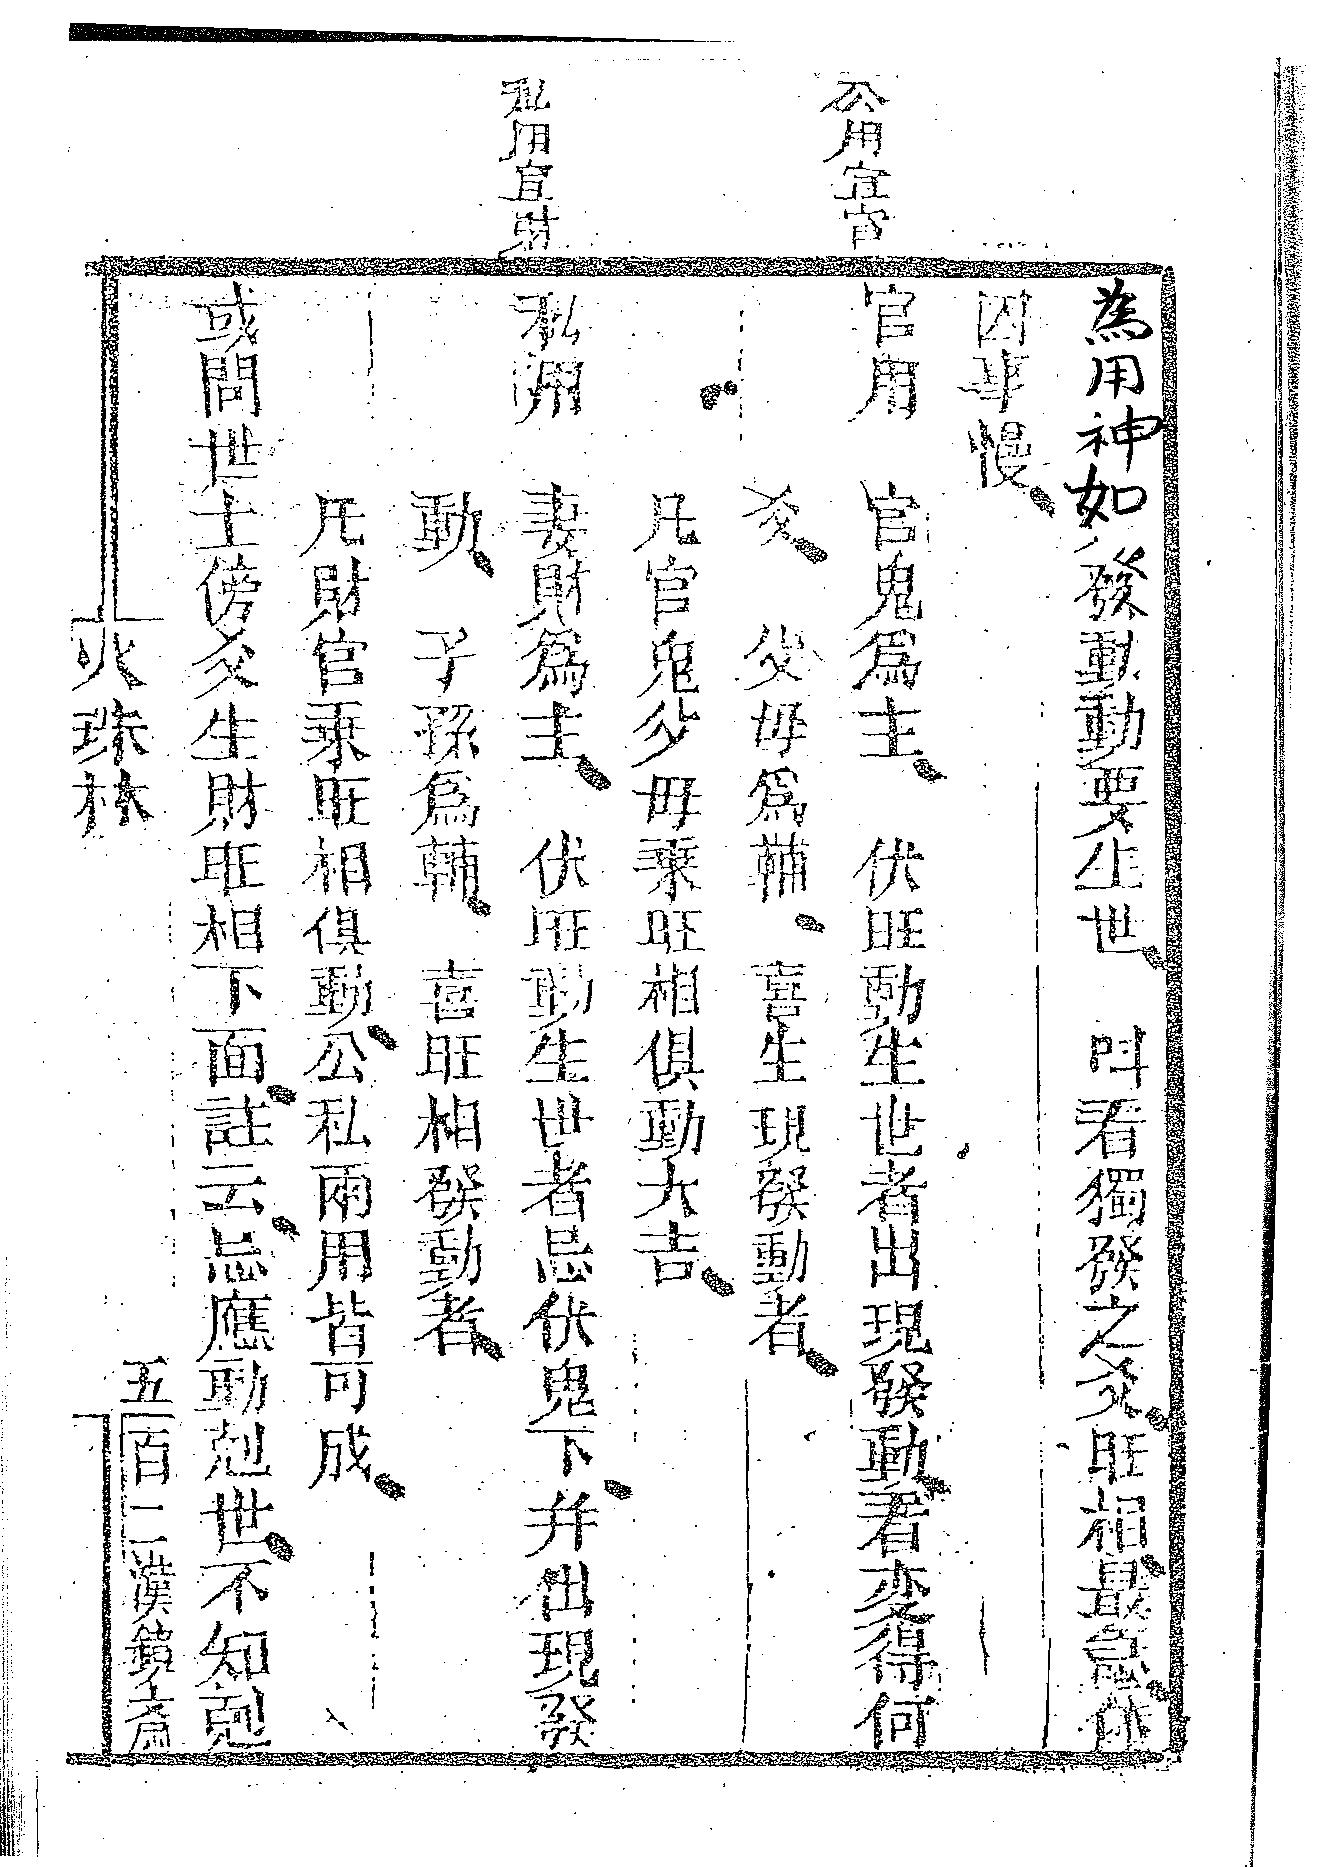 公用宜官
私用宜財
為用神如發動動要生世　叫看獨發之爻旺相最急休
囚事慢
官用　官鬼為主　伏旺動生世者出現發動看变得何
爻　父母為輔　喜生現發動者
凡官鬼父母乘旺相俱動大吉
私用　妻財為主　伏旺動生世者忌伏鬼下并出現發
動　子孫為輔　喜旺相發動者
凡財官乘旺相俱動公私兩用皆可成
或問世士傍爻生財旺相下面註云忌應動剋世不知剋
火珠林
五百二漢鏡齋